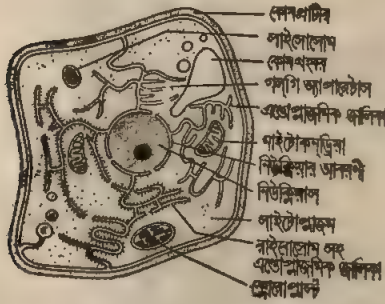 কোষপ্রাচীর
লাইসোসোম
কোষগহ্বর
গলগি অ্যাপারেটাস
এণ্ডোপ্লাজমিক জালিকা
মাইটোকন্ড্রিয়া
নিউক্লিয়ার আবরণী
নিউক্লিয়াস
সাইটোপ্লাজম
রাইবোসোম সহ
এণ্ডোপ্লাজমিক জালিকা